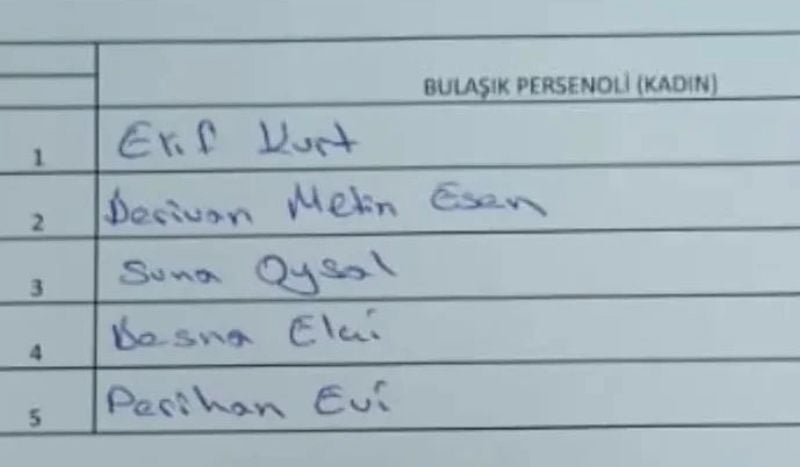 BULAŞIK PERSENOLİ (KADIN)
1 Elif Kurt
2 Berivan Metin Esen
3 Suna Oysal
4 Besna Elçi
5 Perihan Evi